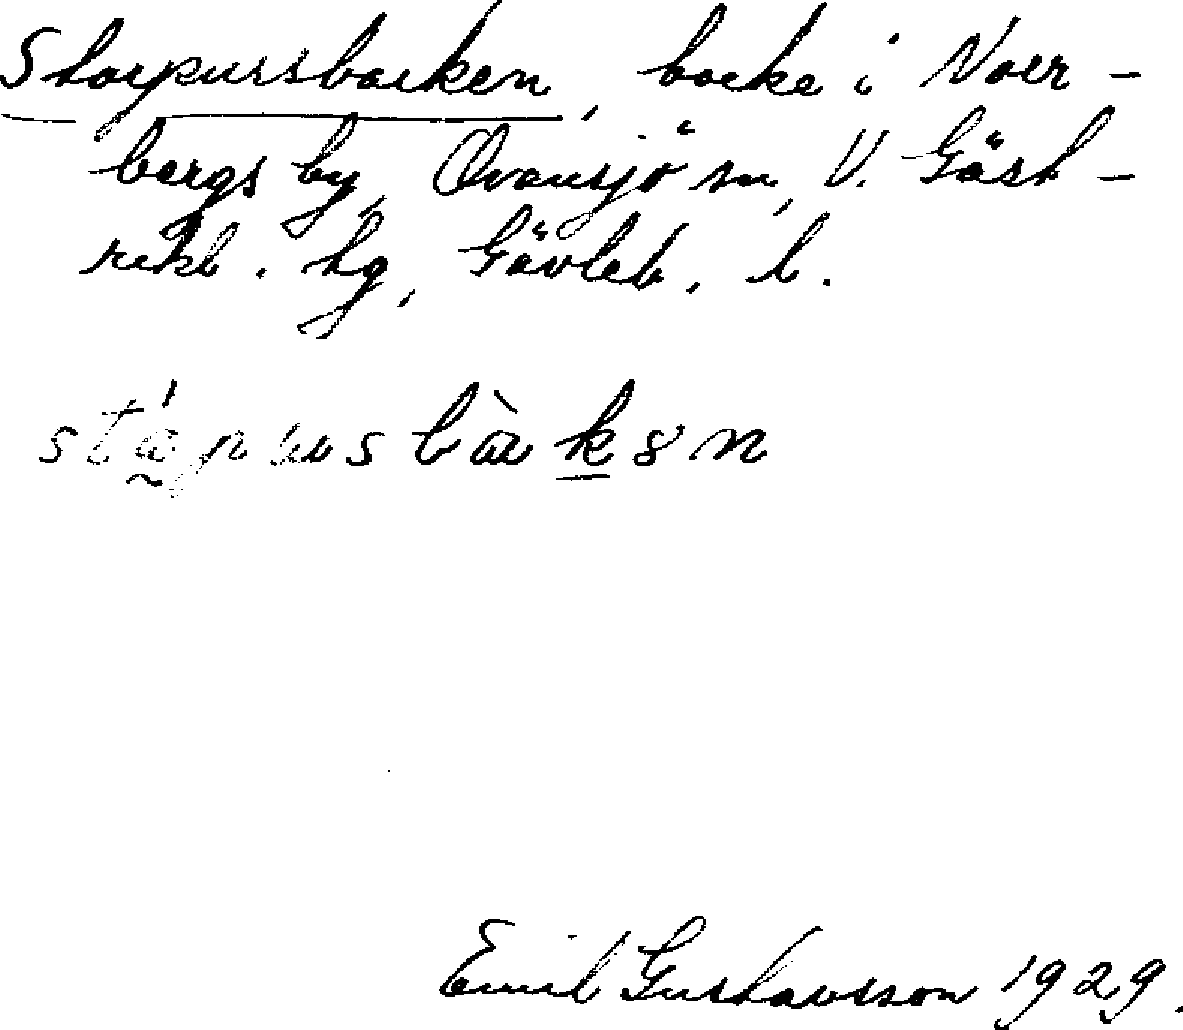 Storpussbacken, backe i Norr-
bergs by, Ovansjö sn, V. Gäst-
rikl. hg, Gävleb. l.
Emil Gustavsson 1929.